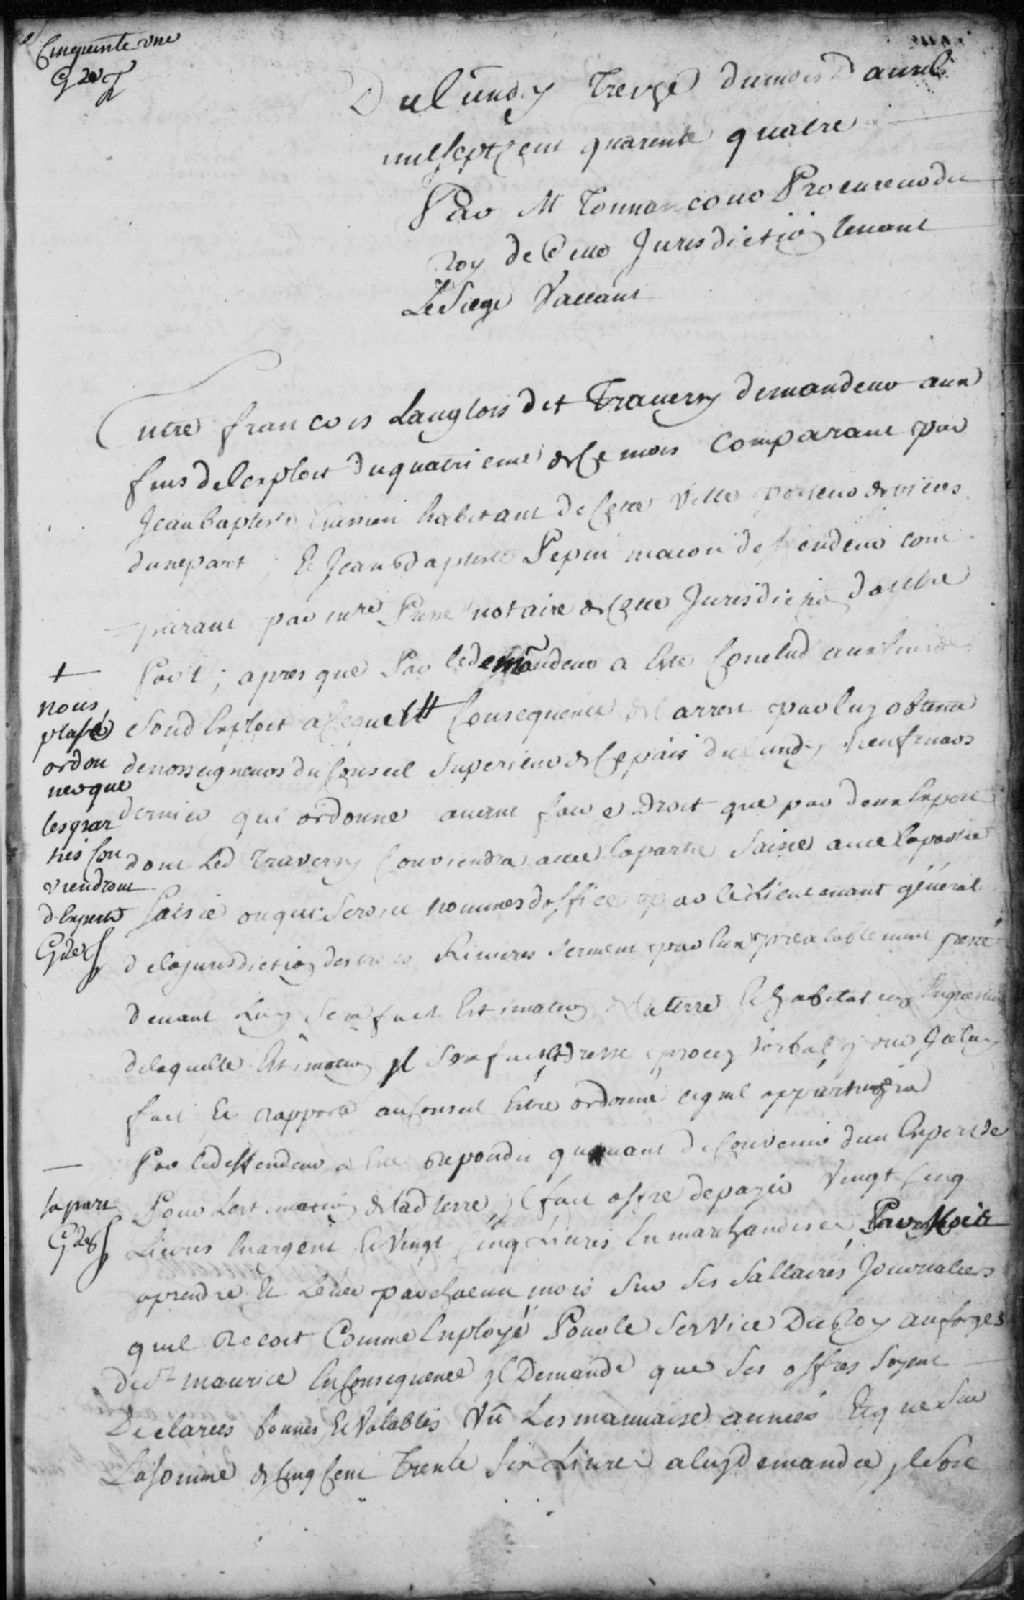 Cinquente une
Dulundy Treize dumois d avril
milseptcent quarente quatre
Par M Tonnancour Procureur du
Roy de cette Jurisdiction tenant
Le Siege Vaccant
Entre francois Langlois dit Traversy demandeur aux
fins delexploit du quatrieme de ce mois comparant par
Jean Baptiste habitant de cette Ville porteur de pieces
dunepart ; Et Jean Baptiste Pepin macon deffendeur com
parant par mre Presse notaire de cette Jurisdiction dautre
Part ; apres que Par ledemandeur a Este Conclud aux fins
desond Exploit a cequ'en Consequence de larrest par luy obtenu
denosseigneurs du Conseil Superieur de ce pais du lundy neuf mars
dernier qui ordonne avant faire droit que par deux Expert
dont Led Traversy Conviendra avec lapartie Saisie
Saisie ou qui Seront nommes doffice par le Lieutenant général
delajurisdiction des trois Rivieres Serment par Eux prealablement presté
devant Luy Sera fait Estimation de la terre Et habitation
delaquelle Estimation Il Sera fait Et dressé procez verbal pour Iceluy
fait Et rapporté au Conseil Estre ordonné cequil appartiendra
Par ledeffendeur a Esté Repondu quavant de Convenir dun Expert de
sa part
Pour Lestimation de lad terre, Il fait offre depayer Vingt Cinq
Livres En argent Et Vingt Cinq Livres En marchandises Par Mois
aprendre Et Lever par chacun mois Sur Ses Sallaires Journaliers
quil Recoit Comme Employé Pour le Service Du Roy au forges
de St maurice En Consequence Il Demande que Ses offres Soyent
Declarées bonnes Et Valables Vû Les mauvaise années Et que Sur
La Somme de Cinq Cent Trente Six Livres aluy demandée,
+
nous
plassé
ordon
nes que
les par
ties Con
viendront
d Experts